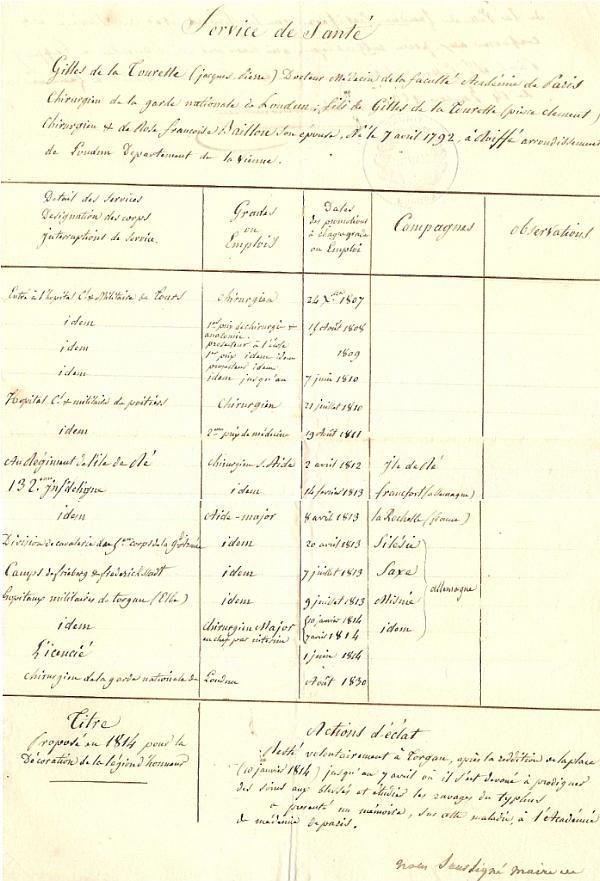 Service de Santé
Gilles de la Tourette (jacques pierre) Docteur Médecin de la faculté Académie de Paris
Chirurgien de la garde nationale de Loudun ; fils de Gilles de la Tourette (pierre clement)
Chirurgien & de Rose françoise Baillon son epouse, Né le 7 avril 1792, à Chiffé arrondissement
de Loudun Departement de la Vienne.
Détail des services
Designation des corps
interruptions de service.
Grades
ou
Emplois
Dates
des promotions
à chaque grade
ou Emploi
Campagnes
Observations
Entré à l'hopital Cl. & Militaire de Tours chirurgien 24 Xbre 1807
idem 1er prix de chirurgie & anatomie. 1 Août 1808
idem prosecteur à l'école 1er prix idem idem 1809
idem prosecteur idem idem jusqu'au 7 juin 1810
Hopital Cl. & militaire de poitiers Chirurgien 21 juillet 1810
idem 2eme prix de médecine 19 Août 1811
Au Regiment de l'ile de Ré Chirurgien S. Aide 2 avril 1812 ile de Ré
132.eme Inf. de ligne idem 14 fevrier 1813 francfort (allemagne)
idem Aide-major 8 avril 1813 la Rochelle (france)
Division de cavalerie du 5eme corps de la gde armée idem 20 avril 1813 Silésie
Camps de friberg & frederickstadt idem 7 juillet 1813 Saxe allemagne
hopitaux militaires de torgau (Elbe) idem 9 juillet 1813 Misnie
idem Chirurgien Major en chef par interim 10 janvier 1814 7 avril 1814 idem
Licencié 1 juin 1814
Chirurgien de la garde nationale de Loudun Août 1830
Titre
Proposé en 1814 pour la
Décoration de la légion d'honneur
Actions d'éclat
Resté volontairement à Torgau, après la reddition de la place
(10 janvier 1814) jusqu'au 7 avril où il s'est devoué à prodiguer
des soins aux blessés et étudier les ravages du typhus
a presenté un mémoire, sur cette maladie, à l'Académie
de médecine de paris.
nous Soussigné maire